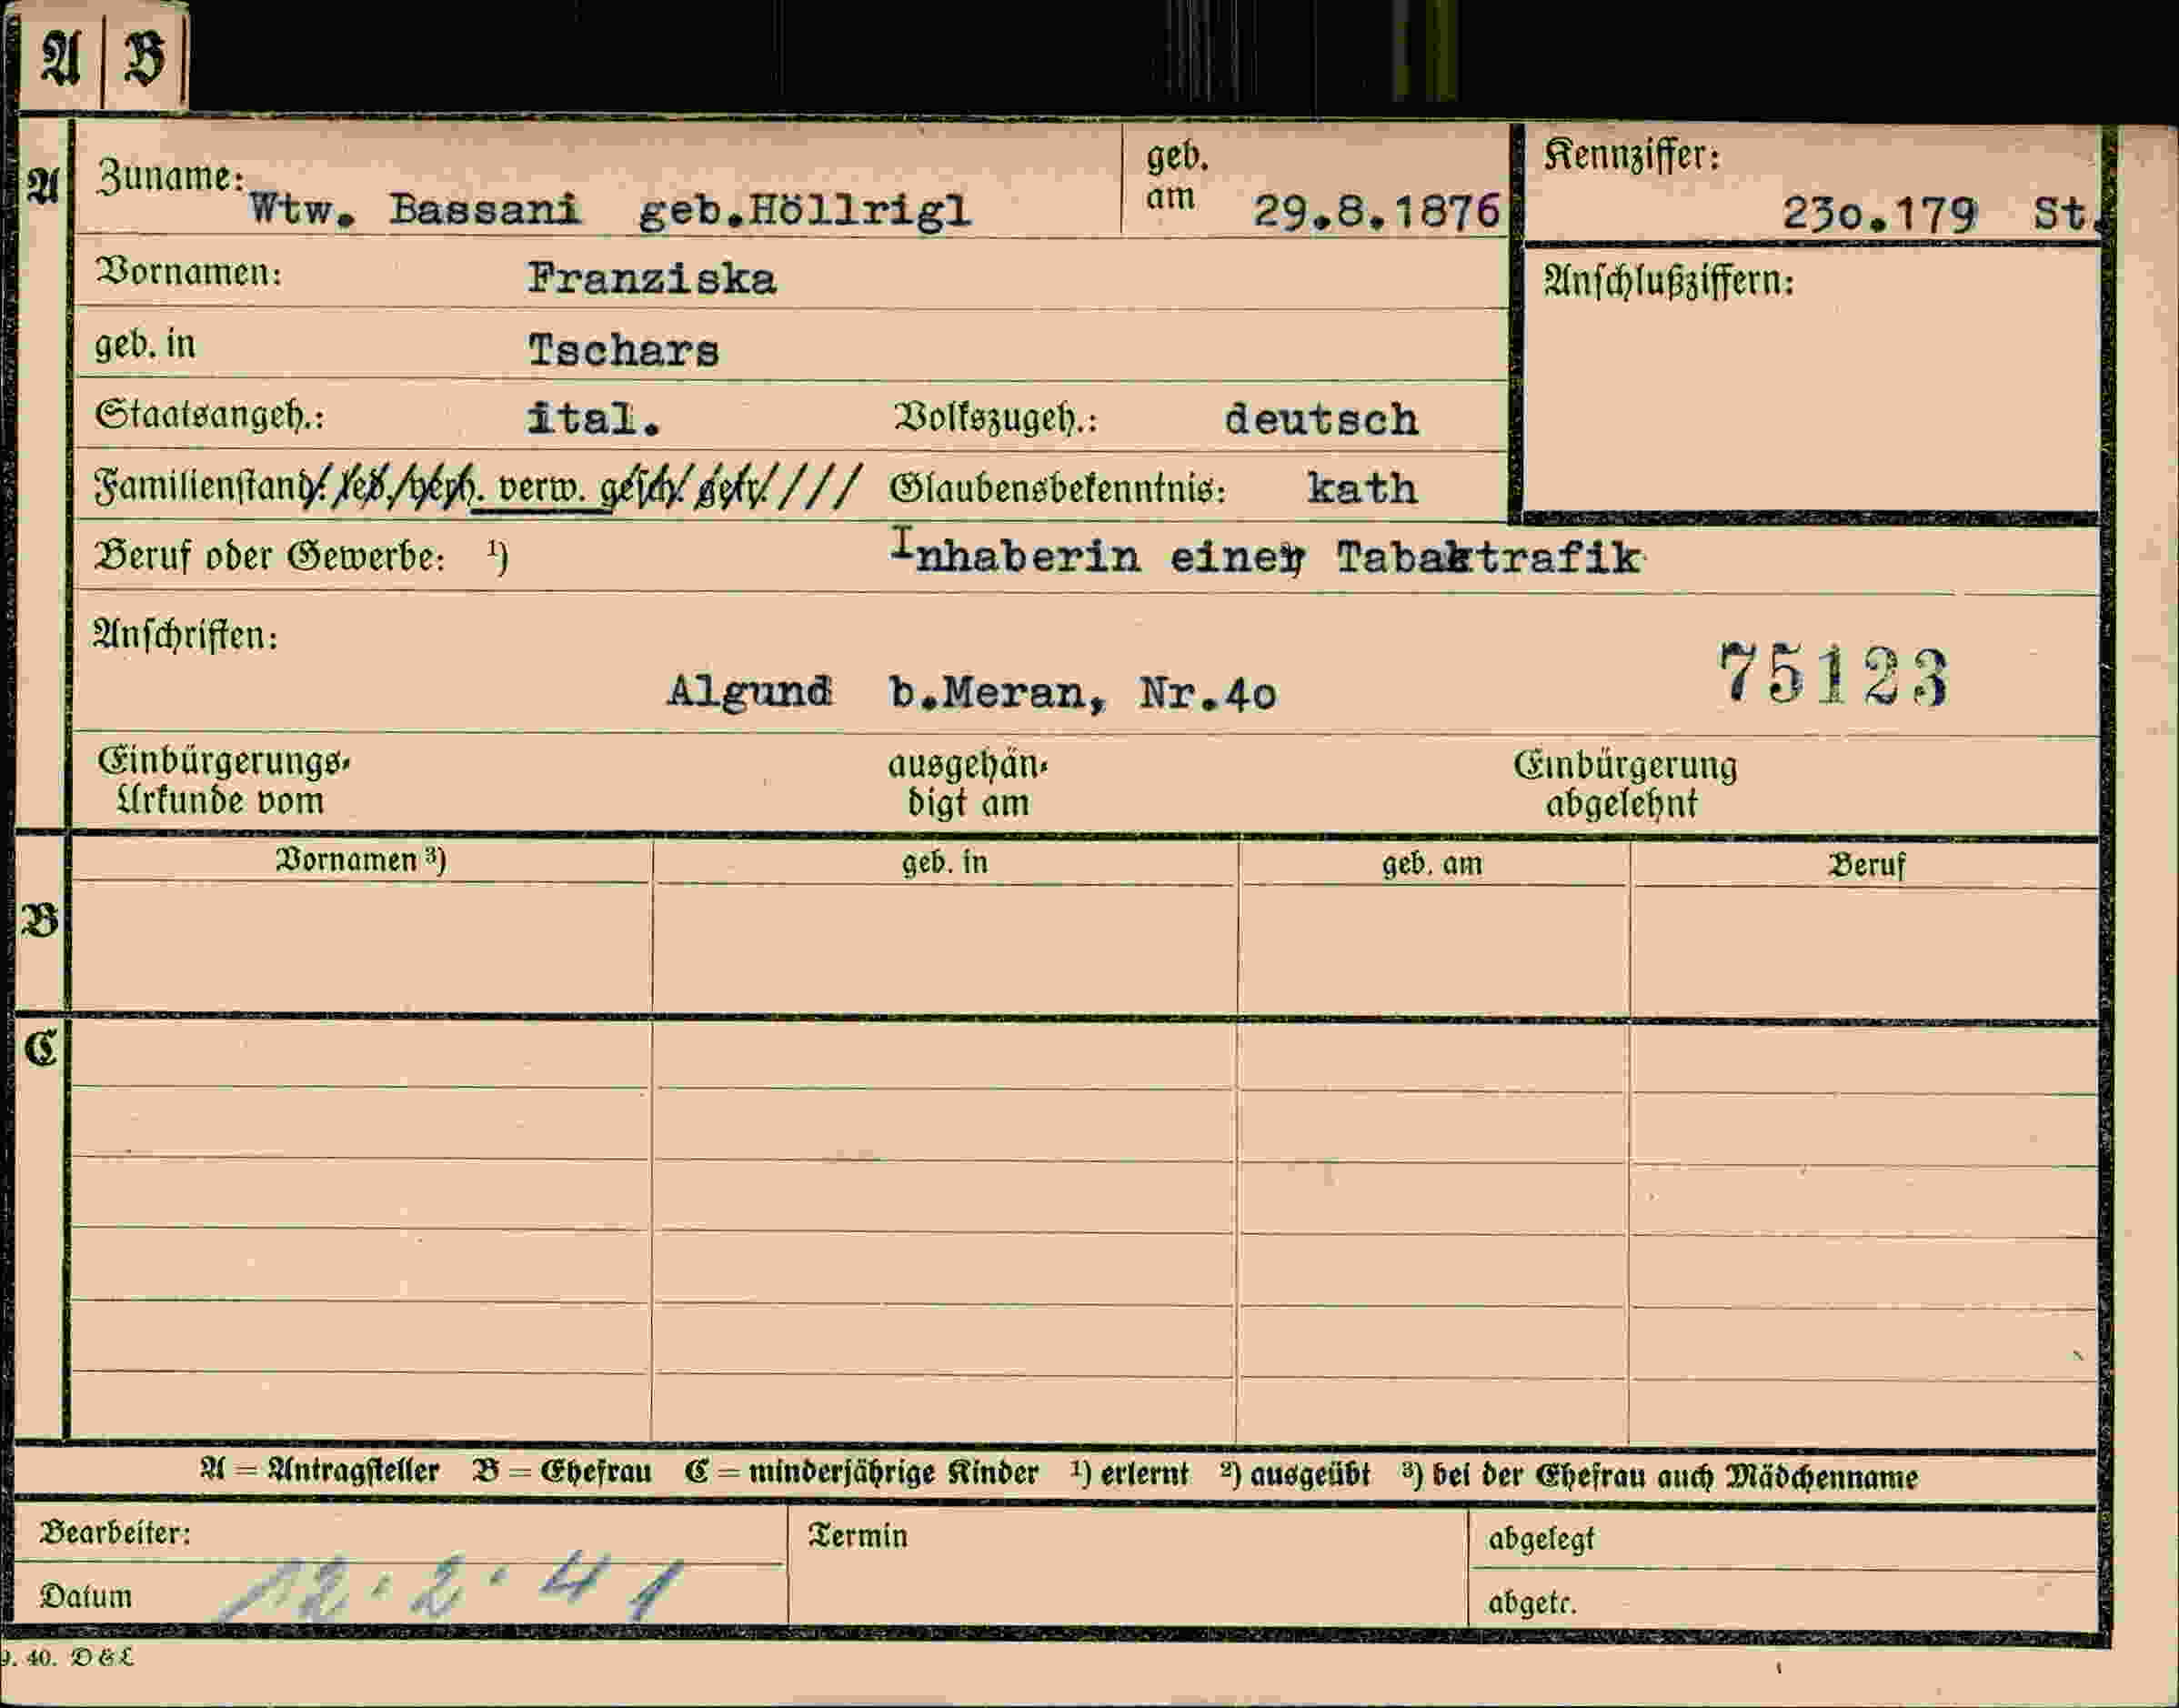 A B
A
Zuname: Wtw. Bassani geb.Höllrigl
geb. am 29.8.1876
Kennziffer: 23o.179 St.
Vornamen: Franziska
Anschlußziffern:
geb. in Tschars
Staatsangeh.: ital. Volkszugeh.: deutsch
Familienstand: led. verh. verw. gesch. getr. Glaubensbekenntnis: kath
Beruf oder Gewerbe: ¹) Inhaberin einer Tabaktrafik
Anschriften:
Algund b.Meran, Nr.4o
75123
Einbürgerungs-
Urkunde vom
ausgehän-
digt am
Einbürgerung
abgelehnt
B
Vornamen ³) geb. in geb. am Beruf
C
A = Antragsteller B = Ehefrau C = minderjährige Kinder ¹) erlernt ²) ausgeübt ³) bei der Ehefrau auch Mädchenname
Bearbeiter: Termin abgelegt
Datum 12.2.41 abgetr.
9. 40. D & L